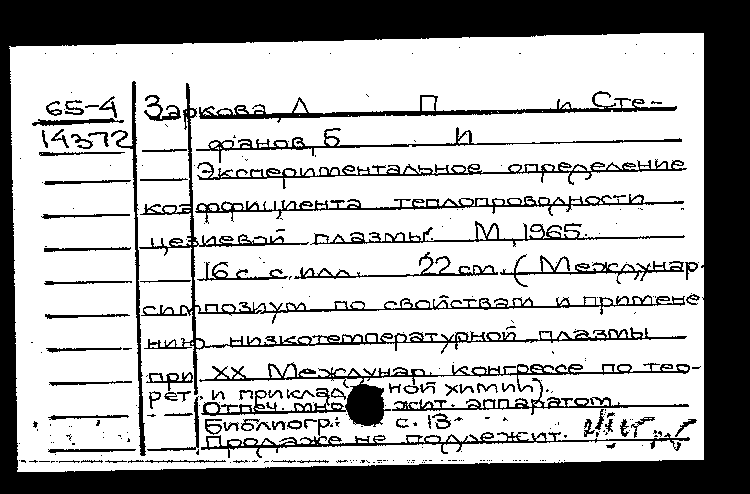 65-4 Заркова, Л П и Сте-
14372 фанов, Б И
Экспериментальное определение
коэффициента теплопроводности
цезиевой плазмы. М, 1965.
16 с. с илл. 22 см. (Междунар.
симпозиум по свойствам и примене-
нию низкотемпературной плазмы
при XX Междунар. конгрессе по тео-
рет. и приклад ной химии).
Отпеч. мно жит. аппаратом.
Библиогр.: с. 13
Продаже не подлежит.